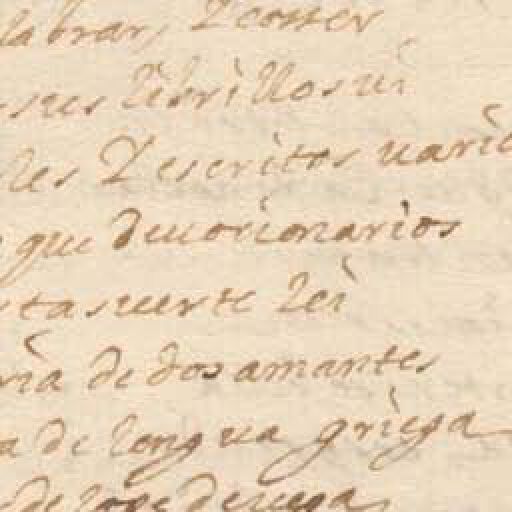 labrar, Y coser
sus librillos ui
les Y escritos uario
que deuocionarios
ta suerte lei
ria de dos amantes
a de lengua griega
de lope de uega